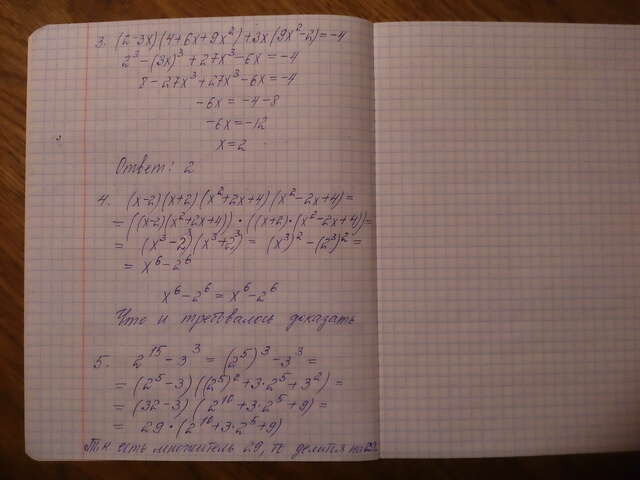 3. (2-3x)(4+6x+9x²)+3x(9x²-2)=-4
2³-(3x)³+27x³-6x=-4
8-27x³+27x³-6x=-4
-6x=-4-8
-6x=-12
x=2
Ответ: 2
4. (x-2)(x+2)(x²+2x+4)(x²-2x+4)=
=((x-2)(x²+2x+4))·((x+2)·(x²-2x+4))=
= (x³-2³)(x³+2³)= (x³)²-(2³)²=
= x⁶-2⁶
x⁶-2⁶=x⁶-2⁶
Что и требовалось доказать
5. 2¹⁵-3³=(2⁵)³-3³=
=(2⁵-3)((2⁵)²+3·2⁵+3²)=
=(32-3)(2¹⁰+3·2⁵+9)=
= 29·(2¹⁰+3·2⁵+9)
Т.к есть множитель 29, то делится на 29